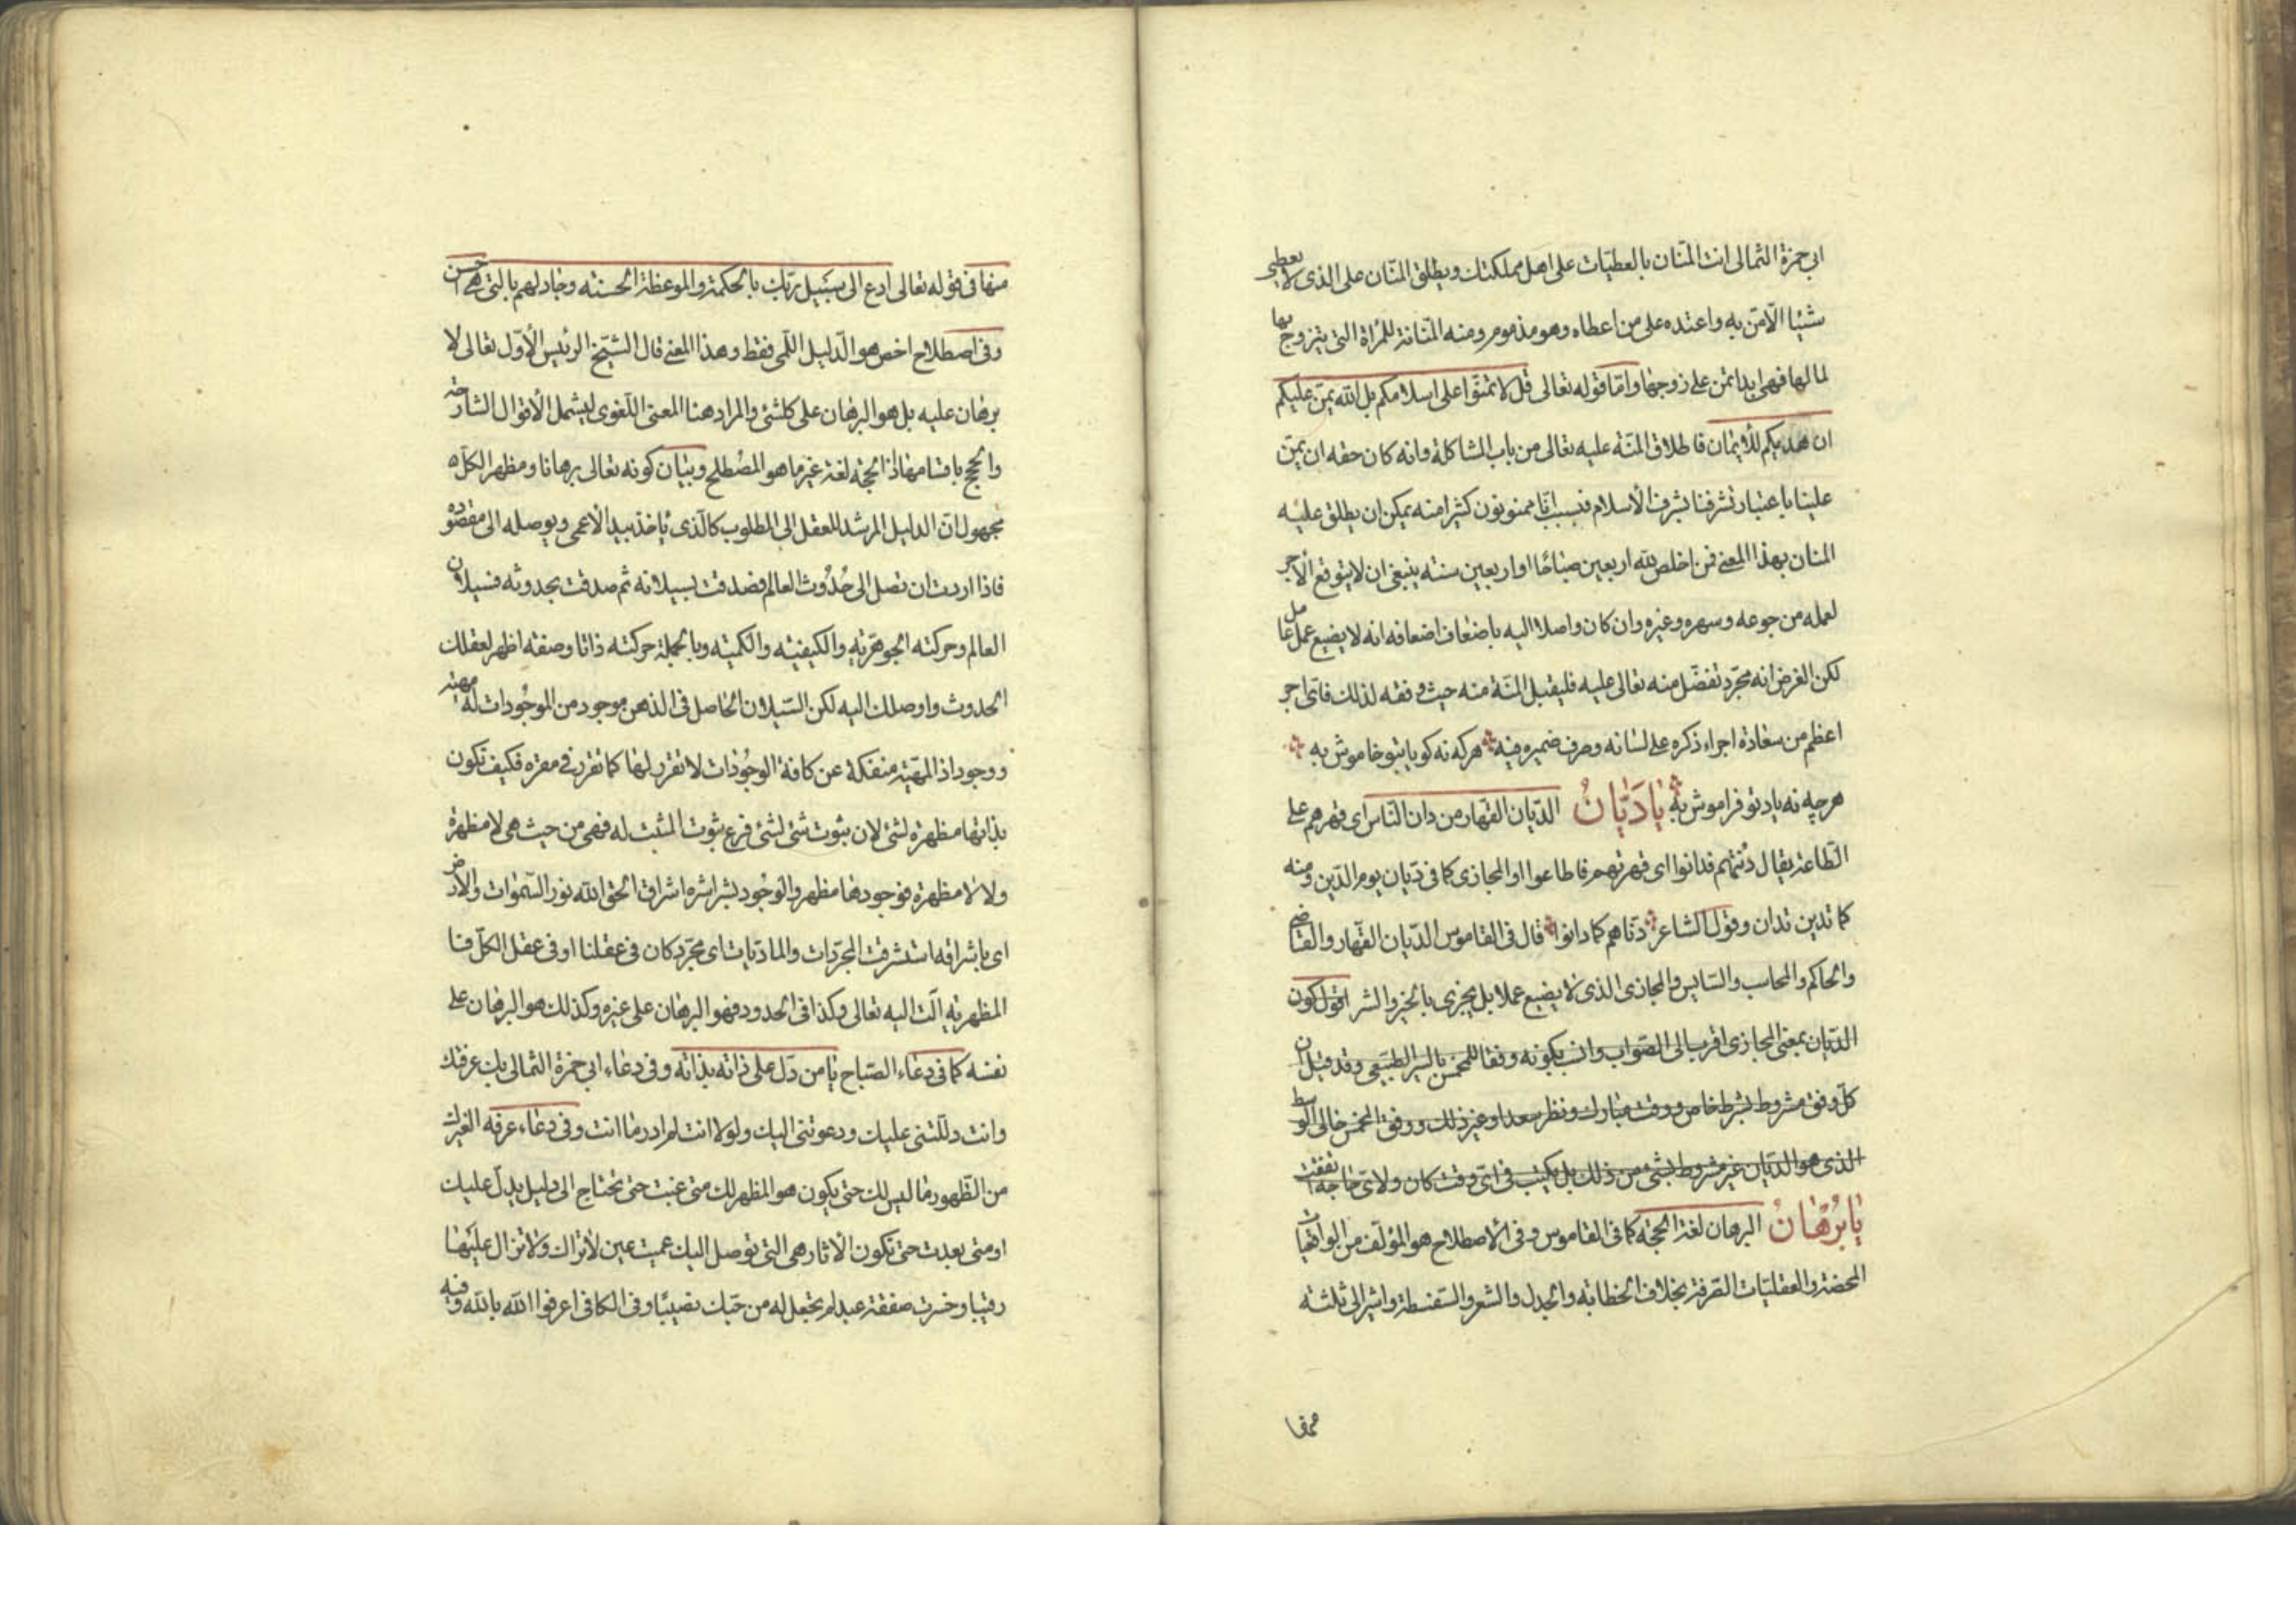 ابي حمزة الثمالى انت المنّان بالعطيّات على اهل مملكتك ويطلق المنّان على الذى لا يعطى
شيئا الّا منّ به واعتده على من اعطاه وهو مذموم ومنه المنّانة للمرأة التى يتزوج بها
لما لها فهى ابدا تمنّ على زوجها وامّا قوله تعالى قل لا تمنّوا على اسلامكم بل الله يمنّ عليكم
ان هديكم للأيمان فاطلاق المنّة عليه تعالى من باب المشاكلة وانه كان حقه ان يمنّ
علينا باعتبار تشرفنا بشرف الأسلام فبسبب انّا ممنونون كثيرا منه يمكن ان يطلق عليه
المنان بهذا المعنى فمن اخلص لله اربعين صباحًا او اربعين سنه ينبغى ان لا يتوقع الأجر
لعمله من جوعه وسهره وغيره وان كان واصلا اليه باضعاف اضعافه انه لا يضيع عمل عامل
لكن الغرض انه مجرّد تفضّل منه تعالى عليه فليقبل المنّة منه حيث وفقه لذلك فاىّ اجر
اعظم من سعادة اجراء ذكره على لسانه وصرف ضميره فيه هر كه نه كويا بتو خاموش به
هر چه نه ياد تو فراموش به يٰا دَيّانُ الديّان القهار من دان النّاس اى قهرهم على
الطّاعة يقال دُنتهم فدانوا اى قهرتهم فاطاعوا او المجازى كما فى ديّان يوم الدّين ومنه
كما تدين تدان وقول الشاعر دنّاهم كما دانوا قال فى القاموس الديّان القهّار والقاضى
والحاكم والمحاسب والسّايس والمجازى الذى لا يضيع عملا بل يجزى بالخير والشر اقول كون
الديّان بمعنى المجازى اقرب الى الصّواب وانسب بكونه وفقا للمخمس بالسير الطبيعى وقد قيل ان
كلّ وفق مشروط بشرط خاص ووقت مبارك ونظر سعد او غير ذلك ووفق المخمس خالى الوسط
الذى هو الديّان غير مشروط بشئ من ذلك بل يكتب فى اىّ وقت كان ولاىّ حاجة اتفقت
يٰا بُرْهٰانُ البرهان لغة الحجّة كما فى القاموس وفى الأصطلاح هو المؤلّف من اليقينيات
المحضة والعقليّات الصّرفة بخلاف الخطابة والجدل والشعر والسّفسطة واشير الى ثلثه
منها
منها فى قوله تعالى ادع الى سبيل ربّك بالحكمة والموعظة الحسنه وجادلهم بالتى هى احسن
وفى اصطلاح اخصّ هو الدّليل اللّمى فقط وهذا المعنى قال الشيخ الرئيس الأوّل تعالى لا
برهان عليه بل هو البرهان على كلشئ والمراد هنا المعنى اللّغوى ليشمل الأقوال الشارحة
والحجج باقسامها اذ الحجّة لغة غير ما هو المصطلح وبيان كونه تعالى برهانا ومظهرا لكلّ
مجهول انّ الدليل المرشد للعقل الى المطلوب كالّذى يأخذ بيد الأعمى ويوصله الى مقصوده
فاذا اردت ان تصل الى حُدُوث العالم فصدقت بسيلانه ثم صدقت بحدوثه فسيلان
العالم وحركته الجوهريّه والكيفيّه والكميّه وبالجملة حركته ذاتا وصفة اظهر لعقلك
الحدوث واوصلك اليه لكن السّيلان الحاصل فى الذهن موجود من الموجُودات له مهيّة
ووجود اذ المهيّة منفكة عن كافة الوجُودات لا تقرر لها كما تقرر فى مقره فكيف تكون
بذاتها مظهرة لشئ لان ثبوت شئ لشئ فرع ثبوت المثبت له فهى من حيث هى لا مظهرة
ولا لا مظهرة فوجودها مظهر والوجُود بشراشره اشراق الحق الله نور السّموات والارض
اى باشراقه استشرقت المجرّدات والماديّات اى مجرّد كان فى عقلنا او فى عقل الكلّ فما
المظهريه الّت اليه تعالى وكذا فى الحدود فهو البرهان على غيره وكذلك هو البرهان على
نفسه كما فى دعاء الصّباح يٰا من دلّ على ذاته بذاته وفى دعاء ابى حمزة الثمالى بك عرفتك
وانت دللتنى عليك ودعوتنى اليك ولولا انت لم ادر ما انت وفى دعاء عرفه الغيرك
من الظّهور ما ليس لك حتى يكون هو المظهر لك متى غبت حتى تحتاج الى دليل يدلّ عليك
او متى بعدت حتى تكون الآثار هى التى توصل اليك عميت عين لا تراك ولا تزال عليها
رقيبا وخسرت صفقة عبد لم تجعل له من حبّك نصيبًا وفى الكافى اعرفوا الله بالله وفيه